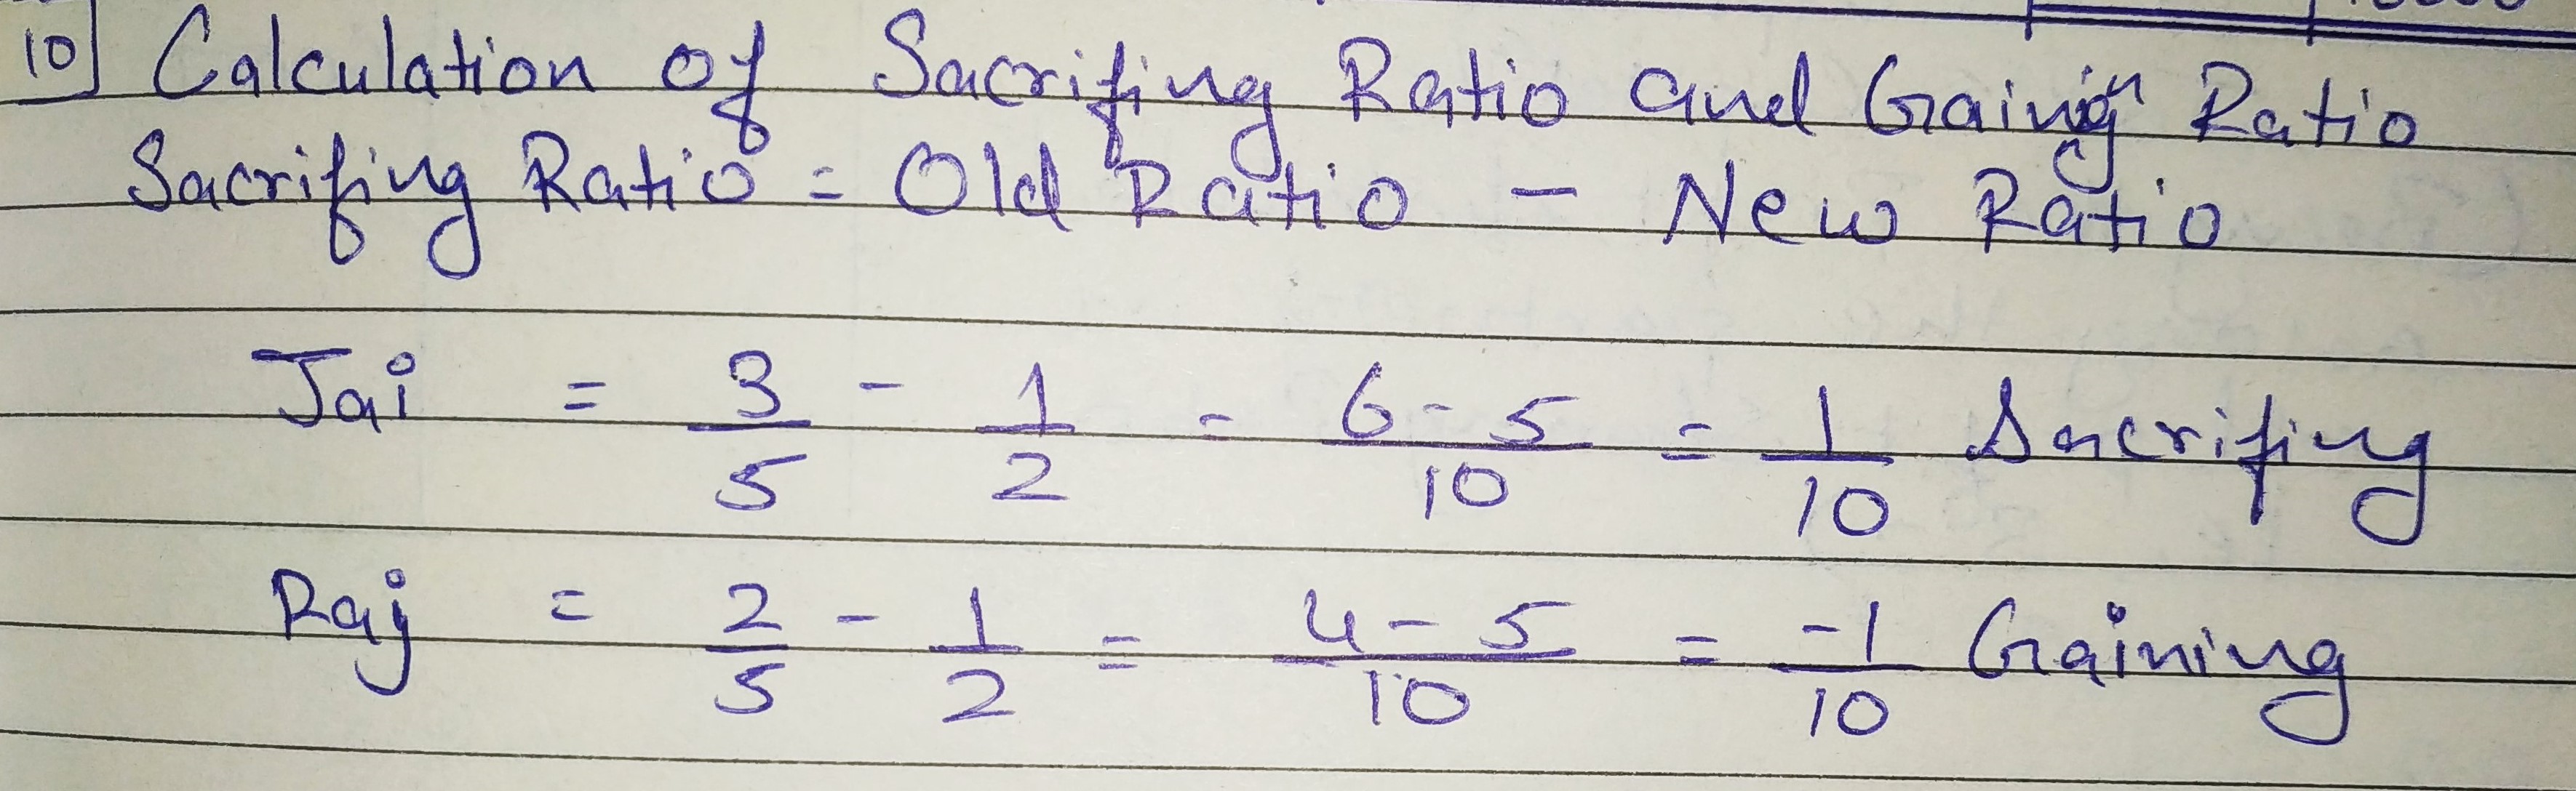 10] Calculation of Sacrifing Ratio and Gaining Ratio
Sacrifing Ratio = Old Ratio - New Ratio
Jai = 3/5 - 1/2 = 6-5/10 = 1/10 Sacrifing
Raj = 2/5 - 1/2 = 4-5/10 = -1/10 Gaining